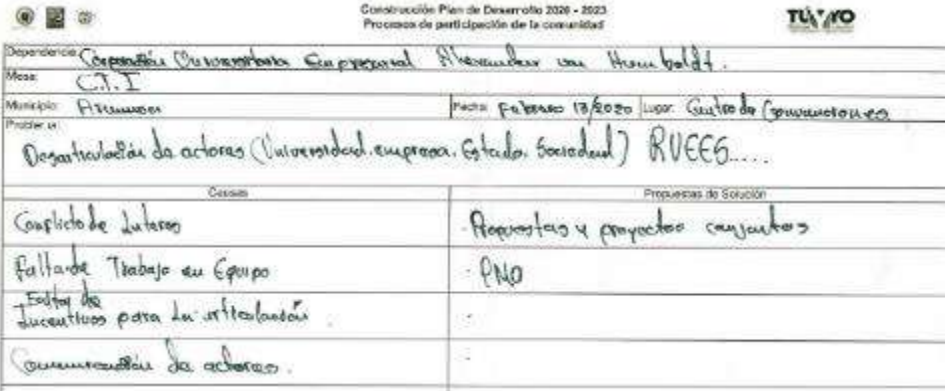 Construcción Plan de Desarrollo 2020 - 2023
Procesos de participación de la comunidad
TÚ Y YO
Dependencia: Corporación Universitaria Empresarial Alexander von Humboldt.
Mesa: C.T.I
Municipio: Armenia Fecha: Febrero 13/2020 Lugar: Centro de Convenciones
Problema:
Desarticulación de actores (Universidad, empresa, Estado, Sociedad) RUEES.....
Causas Propuestas de Solución
Conflicto de Interes - Propuestas y proyectos conjuntos
Falta de Trabajo en Equipo - PMO
Faltan de
Incentivos para La articulación.
Comunicación de actores.